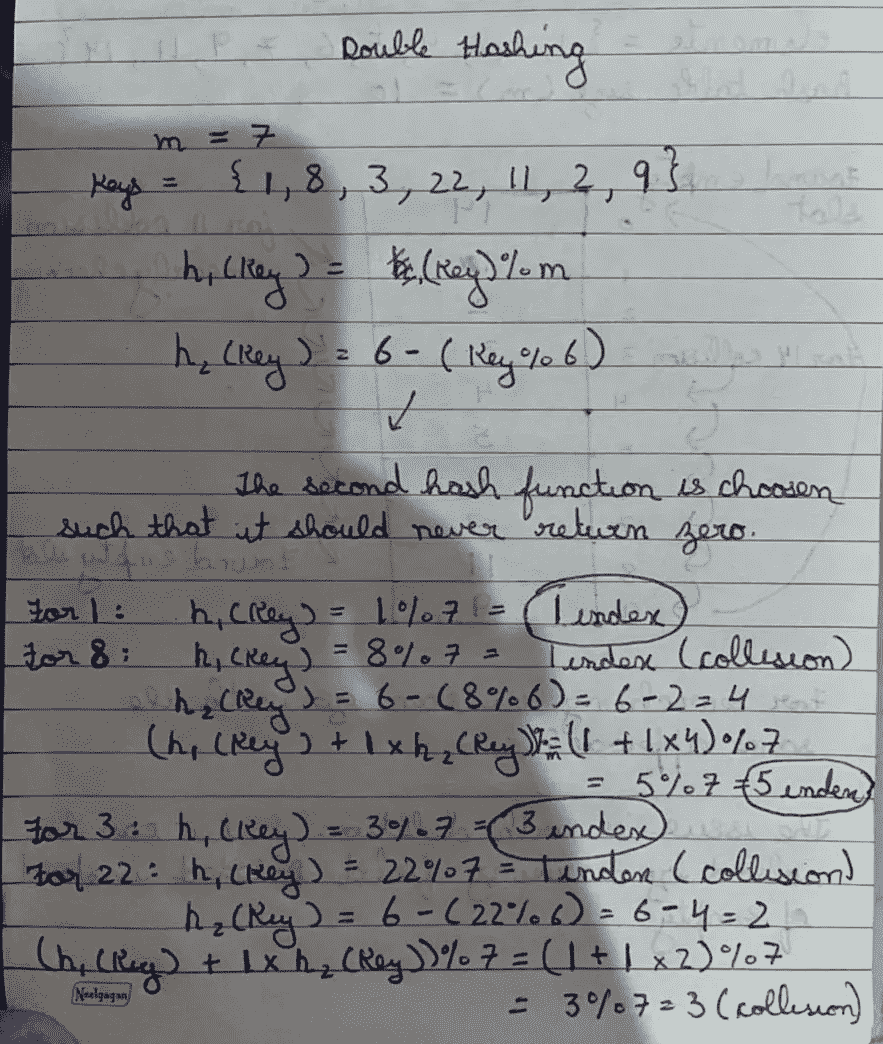 Double Hashing
m = 7
Keys = { 1, 8, 3, 22, 11, 2, 9}
h₁(Key) = (Key)%m
h₂(Key) = 6 - (Key%6)
↓
The second hash function is choosen
such that it should never return zero.
For 1: h₁(Key) = 1%7 = 1 index
For 8: h₁(Key) = 8%7 = 1 index (collision)
h₂(Key) = 6-(8%6) = 6-2=4
(h₁(Key) + 1xh₂(Key))%m=(1+1x4)%7
= 5%7 = 5 index
For 3: h₁(Key) = 3%7 = 3 index
For 22: h₁(Key) = 22%7 = 1 index (collision)
h₂(Key) = 6-(22%6) = 6-4=2
(h₁(Key) + 1xh₂(Key))%7=(1+1x2)%7
Neelgagan
= 3%7=3 (collision)